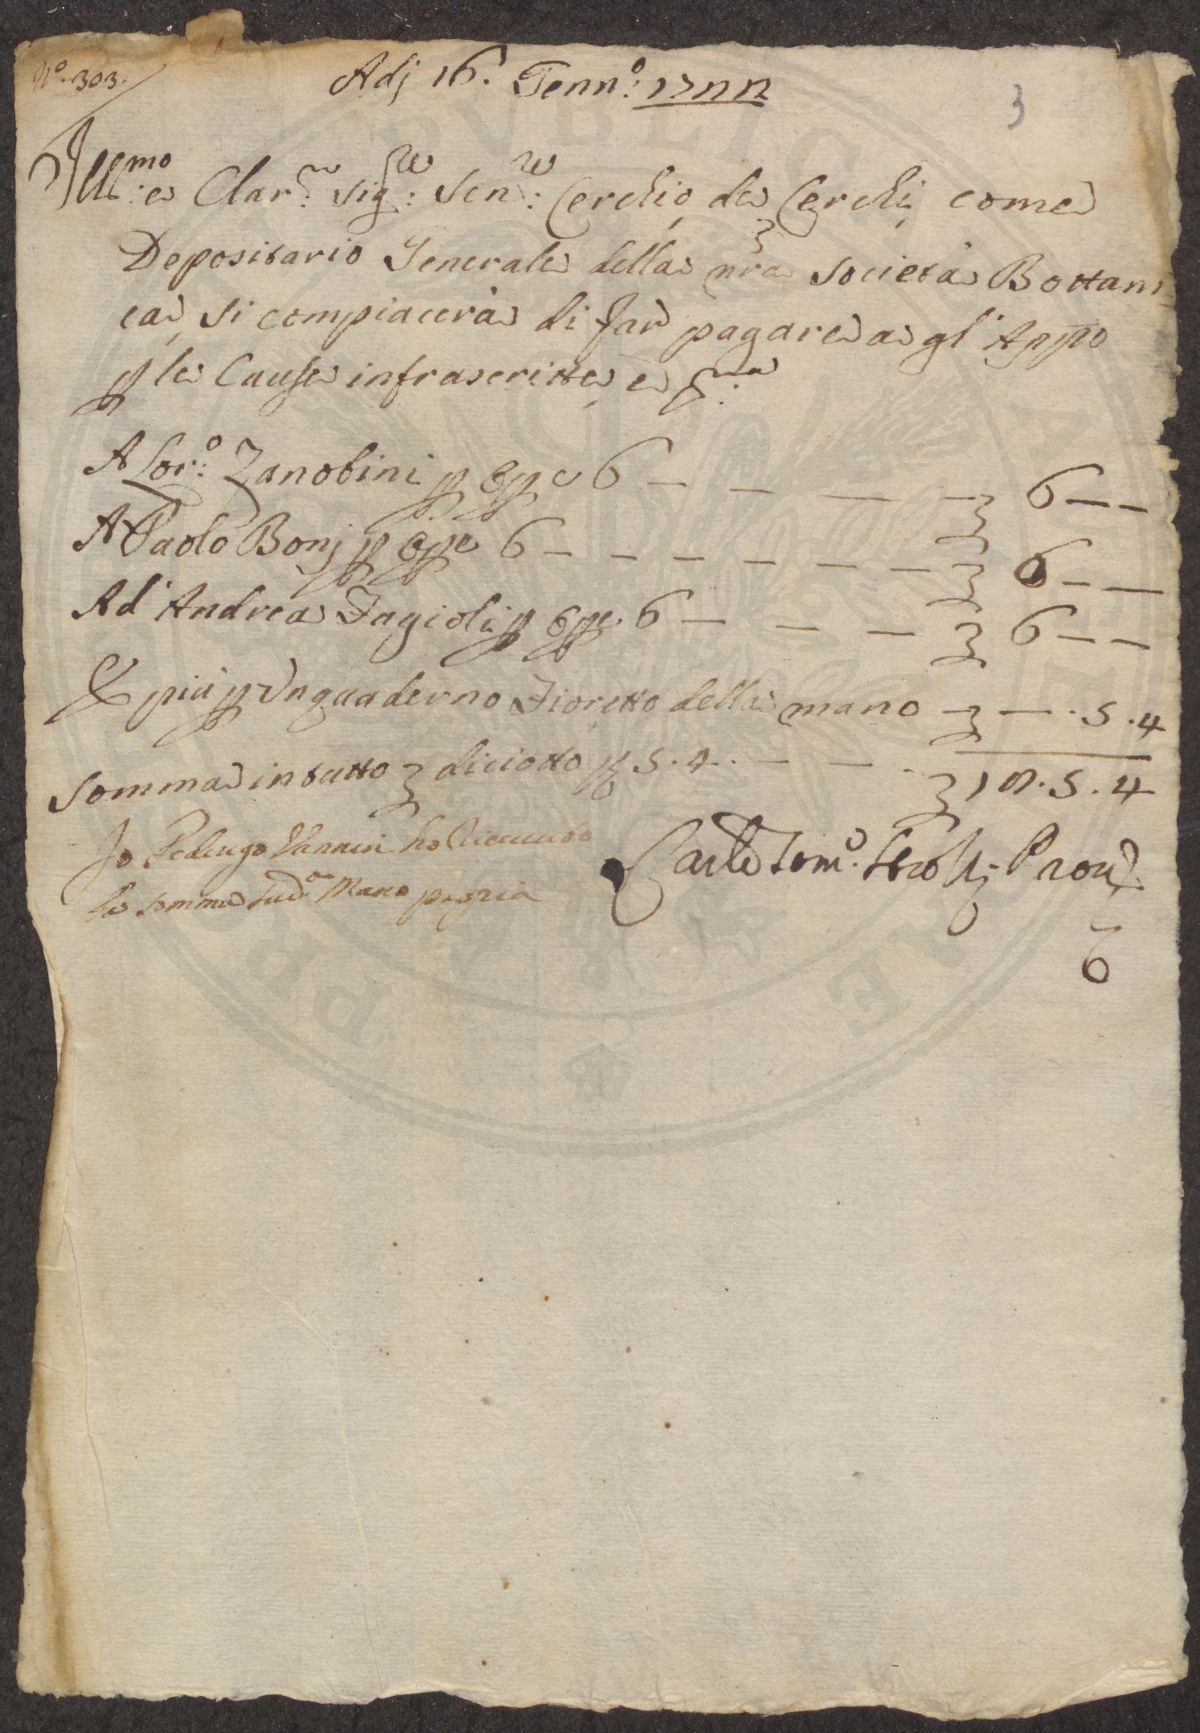 N.° 303.
Adj 16. Genn.°: 17
3
Ill.mo e Clar.mo Sig.re: Sen.re: Cerchio de Cerchi come
Depositario Generale della nra Società Bottani
ca, si compiacerà di far pagare a gl' Appo
p le Cause infrascritte, e p.ma
A Lor.°: Zanobini p Ope 6 — — — — 6 — —
A Paolo Bonj p Ope 6 — — — — — — 6 — —
Ad' Andrea Fagioli p Ope 6 — — — 6 — —
E più p Un quaderno Fioretto della mano — — . 5 . 4
Somma in tutto diciotto 5 . 4 . — — . 18 . 5 . 4
Io Ho Riceuuto
la somma Sud.a Mano propria
Carlo Tom.° Strozzi Prou.
6